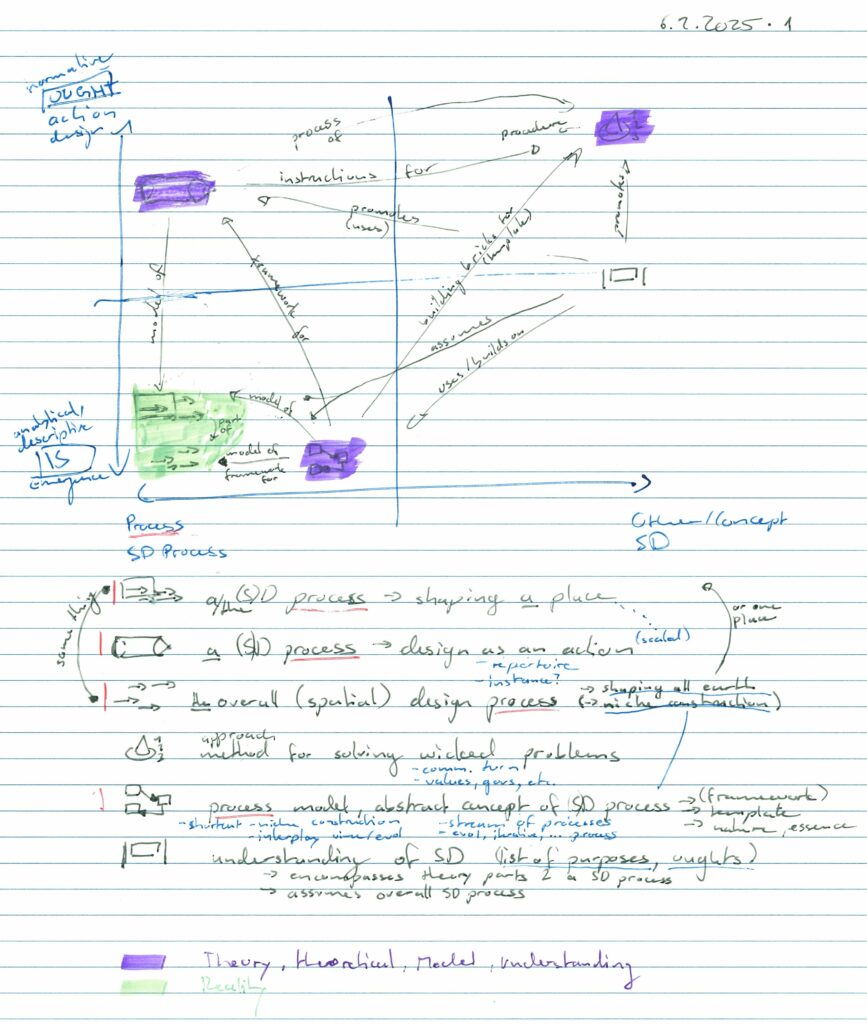 6.2.2025 · 1
normative
OUGHT
action
design
process
of
procedure
instructions for
promotes
(uses)
promotes
building bricks for
(template)
framework for
model of
assumes
uses/builds on
model of
part
of
model of
framework
for
analytical,
descriptive
IS
Emergence
Process
SD Process
Other/Concept
SD
same thing
a/the (S)D process → shaping a place
or one
place
a (S)D process → design as an action
(scaled)
- repertoire
- instance?
the overall (spatial) design process (→ shaping all earth
→ niche construction)
approach
method for solving wicked problems
- comm. turn
- values, govs, etc.
process model, abstract concept of (S)D process → (framework)
→ template
→ nature, essence
- shortcut - niche construction
- stream of processes
- interplay
- evol, iterative, ... process
understanding of SD (list of purposes, oughts)
→ encompasses theory parts 2 a SD process
→ assumes overall SD process
Theory, theoretical, Model, understanding
Reality